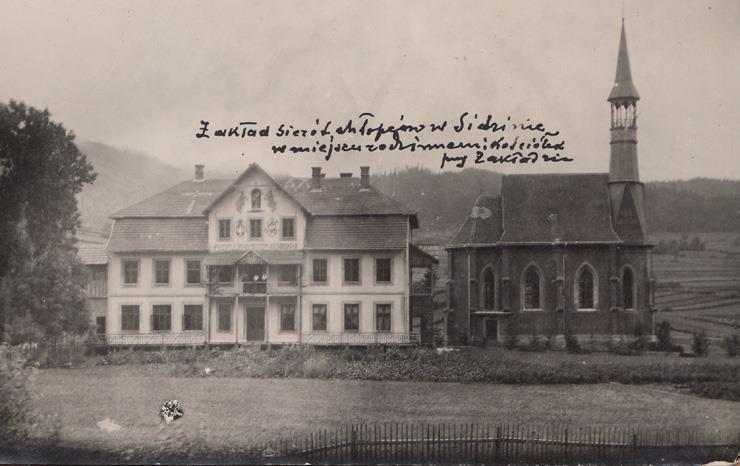 Zakład sierót, chłopców w Sidzinie
w miejscu rodzinnem i Kościółek
przy Zakładzie